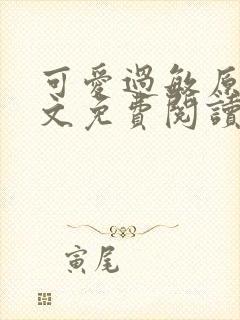 可愛過敏原
文免費閱讀
寅尾